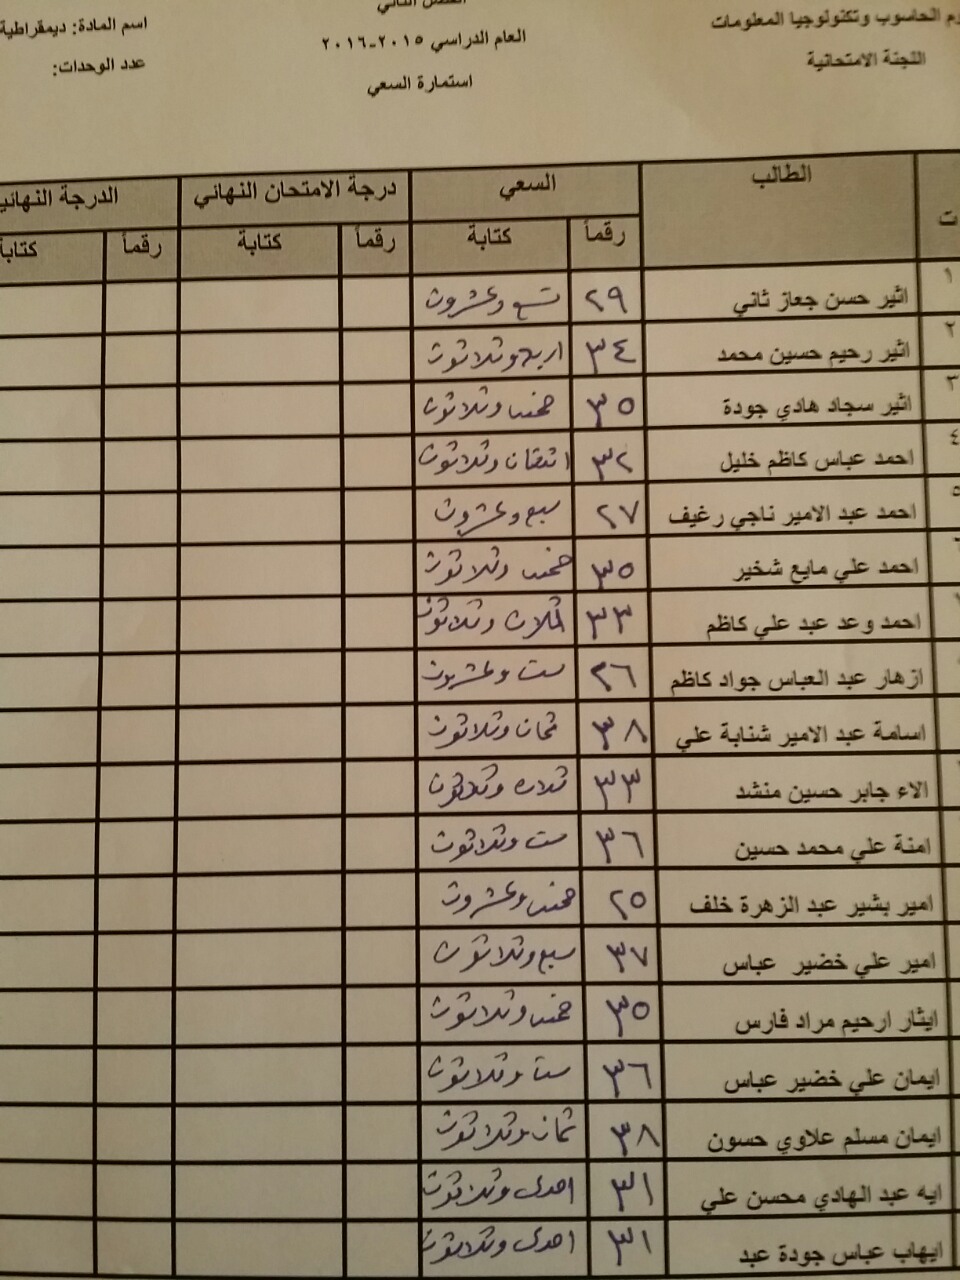 الحاسوب وتكنولوجيا المعلومات
اللجنة الامتحانية
الفصل الثاني
العام الدراسي ٢٠١٥-٢٠١٦
استمارة السعي
اسم المادة: ديمقراطية
عدد الوحدات:
ت الطالب السعي درجة الامتحان النهائي الدرجة
رقماً كتابة رقماً كتابة رقماً كتابة
١ اثير حسن جعاز ثاني ٢٩ تسع وعشرون
٢ اثير رحيم حسين محمد ٣٤ اربع وثلاثون
٣ اثير سجاد هادي جودة ٣٥ خمس وثلاثون
٤ احمد عباس كاظم خليل ٣٢ اثنان وثلاثون
٥ احمد عبد الامير ناجي رغيف ٢٧ سبع وعشرون
احمد علي مايع شخير ٣٥ خمس وثلاثون
احمد وعد عبد علي كاظم ٣٣ ثلاث وثلاثون
ازهار عبد العباس جواد كاظم ٢٦ ست وعشرون
اسامة عبد الامير شنابة علي ٣٨ ثمان وثلاثون
الاء جابر حسين منشد ٣٣ ثلاث وثلاثون
امنة علي محمد حسين ٣٦ ست وثلاثون
امير بشير عبد الزهرة خلف ٢٥ خمس وعشرون
امير علي خضير عباس ٣٧ سبع وثلاثون
ايثار ارحيم مراد فارس ٣٥ خمس وثلاثون
ايمان علي خضير عباس ٣٦ ست وثلاثون
ايمان مسلم علاوي حسون ٣٨ ثمان وثلاثون
ايه عبد الهادي محسن علي ٣١ احدى وثلاثون
ايهاب عباس جودة عبد ٣١ احدى وثلاثون